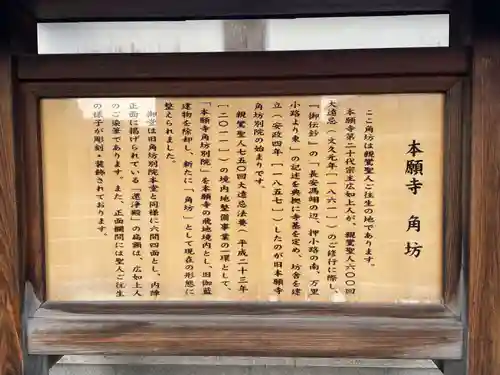 本願寺 角坊
ここ角坊は親鸞聖人ご往生の地であります。
本願寺第二十代宗主広如上人が、親鸞聖人六〇〇回
大遠忌(文久元年[一八六一])のご修行に際し、
『御伝鈔』の「長安馮翊の辺、押小路の南、万里
小路より東」の記述を典拠に寺基を定め、坊舎を建
立(安政四年[一八五七])したのが旧本願寺
角坊別院の始まりです。
親鸞聖人七五〇回大遠忌法要(平成二十三年
[二〇一一])の境内地整備事業の一環として、
「本願寺角坊別院」を本願寺の飛地境内とし、旧伽藍
建物を除却し、新たに「角坊」として現在の形態に
整えられました。
御堂は旧角坊別院本堂と同様に六間四面とし、内陣
正面に掲げられている「還浄殿」の扁額は、広如上人
のご染筆であります。また、正面欄間には聖人ご往生
の様子が彫刻・装飾されております。